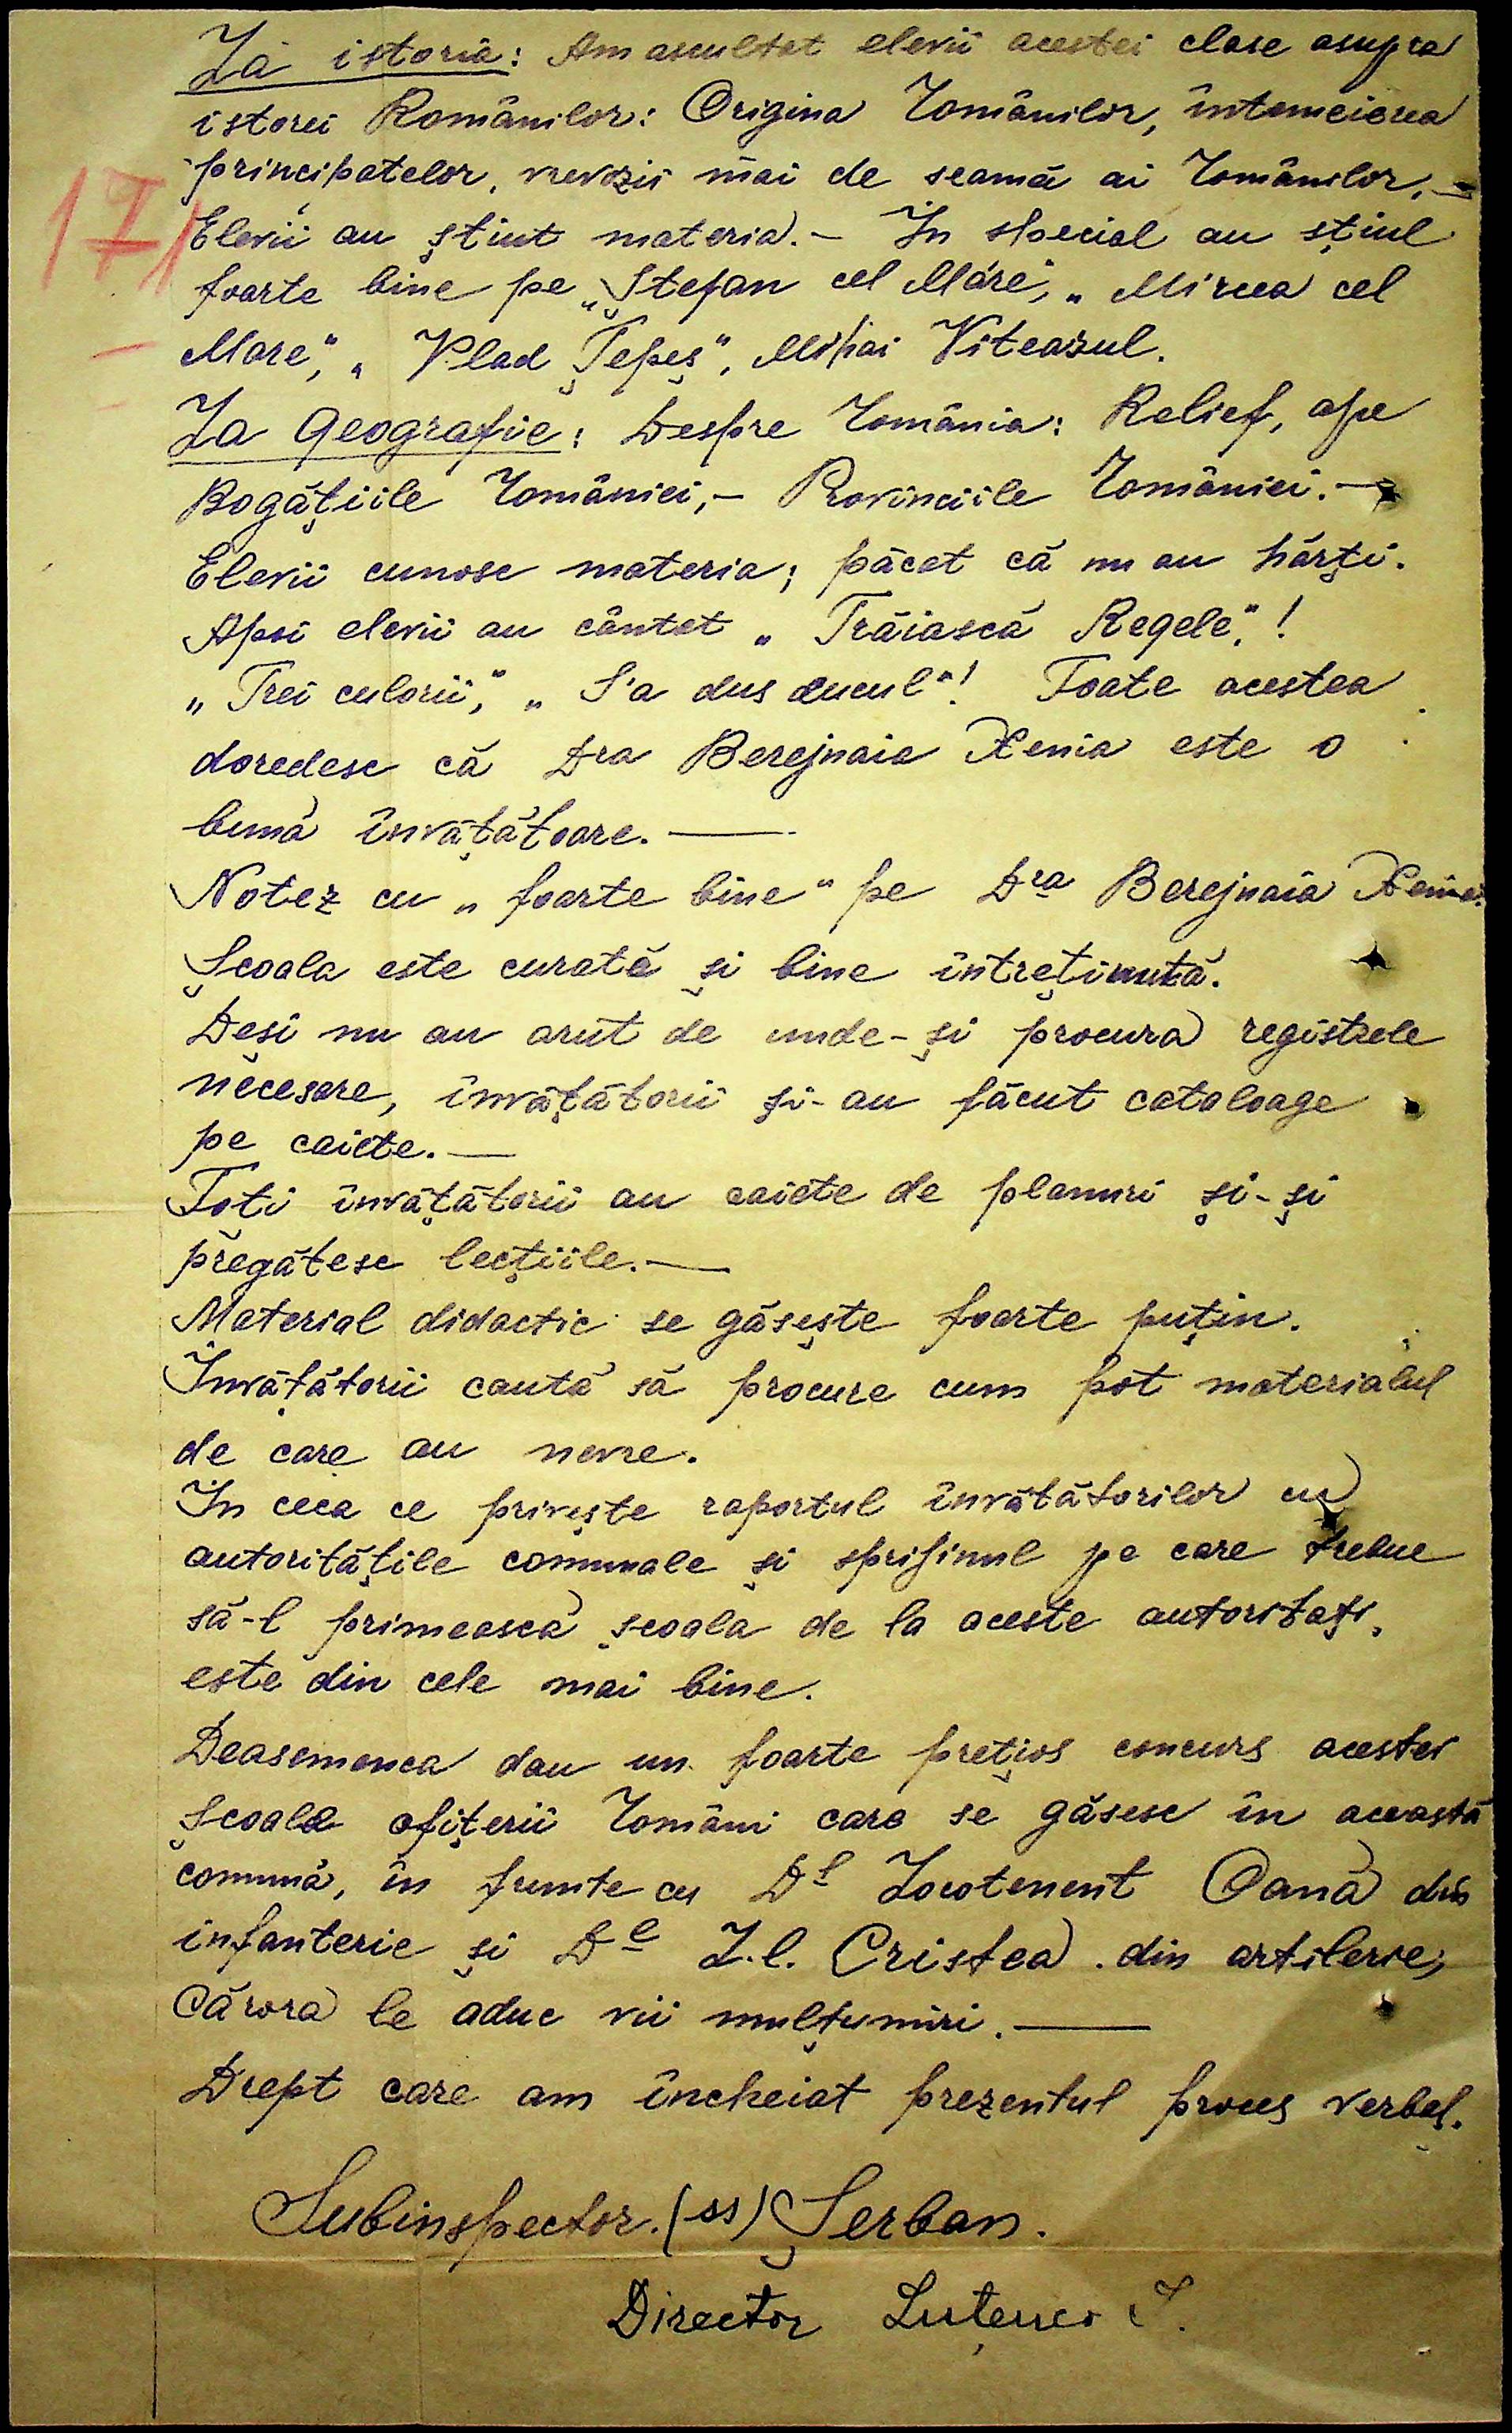 La istoria: Am ascultat elevii acestei clase asupra
istorei Românilor: Origina Românilor, întemeierea
principatelor, voevozii mai de seamă ai Românilor.-
17 Elevii au știut materia.- În special au știut
foarte bine pe „Ștefan cel Mare", „Mircea cel
Mare", „Vlad Țepeș", Mihai Viteazul.
La Geografie: Despre România: Relief, ape
Bogățiile României,- Provinciile României.-
Elevii cunosc materia; păcat că nu au hărți.
Apoi elevii au cântat „Trăiască Regele"!
„Trei culorii", „S'a dus cucul"! Toate acestea
doredesc că Dra Berejnaia Xenia este o
bună învățătoare. —
Notez cu „foarte bine" pe Dra Berejnaia Xenia.
Școala este curată și bine întreținută.
Deși nu au avut de unde-și procura registrele
necesare, învățătorii și-au făcut cataloage
pe caiete. —
Toți învățătorii au caiete de planuri și-și
pregătesc lecțiile. —
Material didactic se găsește foarte puțin.
Învățătorii caută să procure cum pot materialul
de care au nevoe.
În ceea ce privește raportul învățătorilor cu
autoritățile comunale și sprijinul pe care trebue
să-l primească școala de la aceste autoritați,
este din cele mai bine.
Deasemenea dau un foarte prețios concurs acestei
Școale ofițerii Români care se găsesc în această
comună, în frunte cu Dl Locotenent Oană din
infanterie și Dl L.l. Cristea din artilerie,
Cărora le aduc vii mulțumiri. —
Drept care am încheiat prezentul proces verbal.
Subinspector. (ss) Șerban.
Director